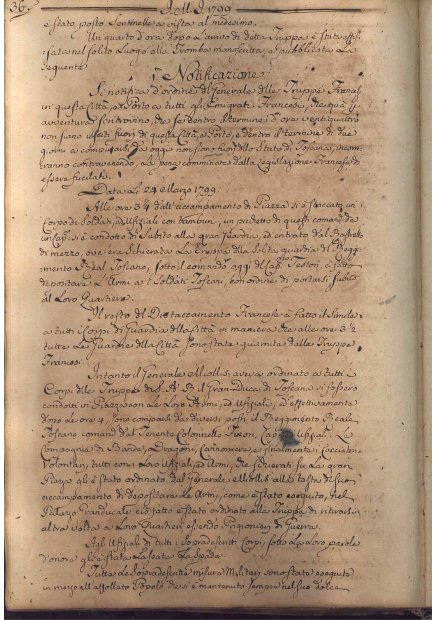 36. A MD 1799
è stato posto Sentinelle a vista al medesimo.
Un quarto d'ora dopo l'arrivo di detta Truppa è stata affi
ssata nel solito Luogo alla Tromba manoscritta, e pubblicata La
Seguente
1ª Notificazione
Si notifica d'ordine del Generale delle Truppe Francesi
in questa Città, e Porto a tutti gl'Emigrati Francesi, che qua
avventura ci si trovino, che se dentro il termine d'ore ventiquattro
non siano usciti fuori di questa Città, e Porto, e dentro il termine di due
giorni a computarsi da oggi non siano fuori dello Stato di Toscana, incor-
reranno contravvenendo La pena comminata dalla Legislazione Francese di
essere fucilati.
Data Li 24 Marzo 1799.
Alle ore 3/4 dall'accampamento di Piazza si è staccato un
Corpo di Soldati, ed Ufiziali con tamburi, un picchetto di questi comandato da
un Cap. si è condotto di Subito alla gran Guardia, ed entrato dal Rastrello
di mezzo, ove era schierata La Truppa della Solita guardia del Reggi-
mento Real Toscano, sotto il comando oggi del Cap.no Testori, è fatto
depositare Le Armi a i Soldati Toscani, con ordine di portarsi subito
al Loro Quartiere.
Il resto del Distaccamento Francese à fatto il Simile
a tutti i Corpi di Guardia della Città in maniera che alle ore 3 1/2
tutte Le Guardie della Città sono state guarnite dalle Truppe
Francesi.
Intanto il Generale Miollis, aveva ordinato a tutti i
Corpi delle Truppe di S. A. R. il Gran-Duca di Toscana si fossero
condotti in Piazza con Le Loro Armi, ed Ufiziali, ed effettivamente
dopo Le ore 4, sono comparsi da diversi posti il Reggimento Reale
Toscano comandato dal Tenente Colonnello Ufizial. Le
Compagnie di Bande, Dragoni, Cannonieri e finalmente i Cacciatori
Volontari, tutti con i Loro Ufiziali, ed Armi, che schierati su La gran
Piazza gl'è stato ordinato dal Generale Miollis alla testa di suo
accampamento di depositare Le Armi, come è stato eseguito, nel
Palazzo Granducale, ciò fatto è stato ordinato alla Truppa di ritirarsi
altra volta a Loro Quartieri essendo Prigionieri di Guerra.
Agli Ufiziali di tutti i Sopradescritti Corpi, sotto La Loro parola
d'onore gl'è stata Lasciata La Spada.
Tutte Le Sopradescritte misure Militari sono state eseguite
in mezzo all'affollato Popolo, che si è mantenuto sempre nel suo dolce